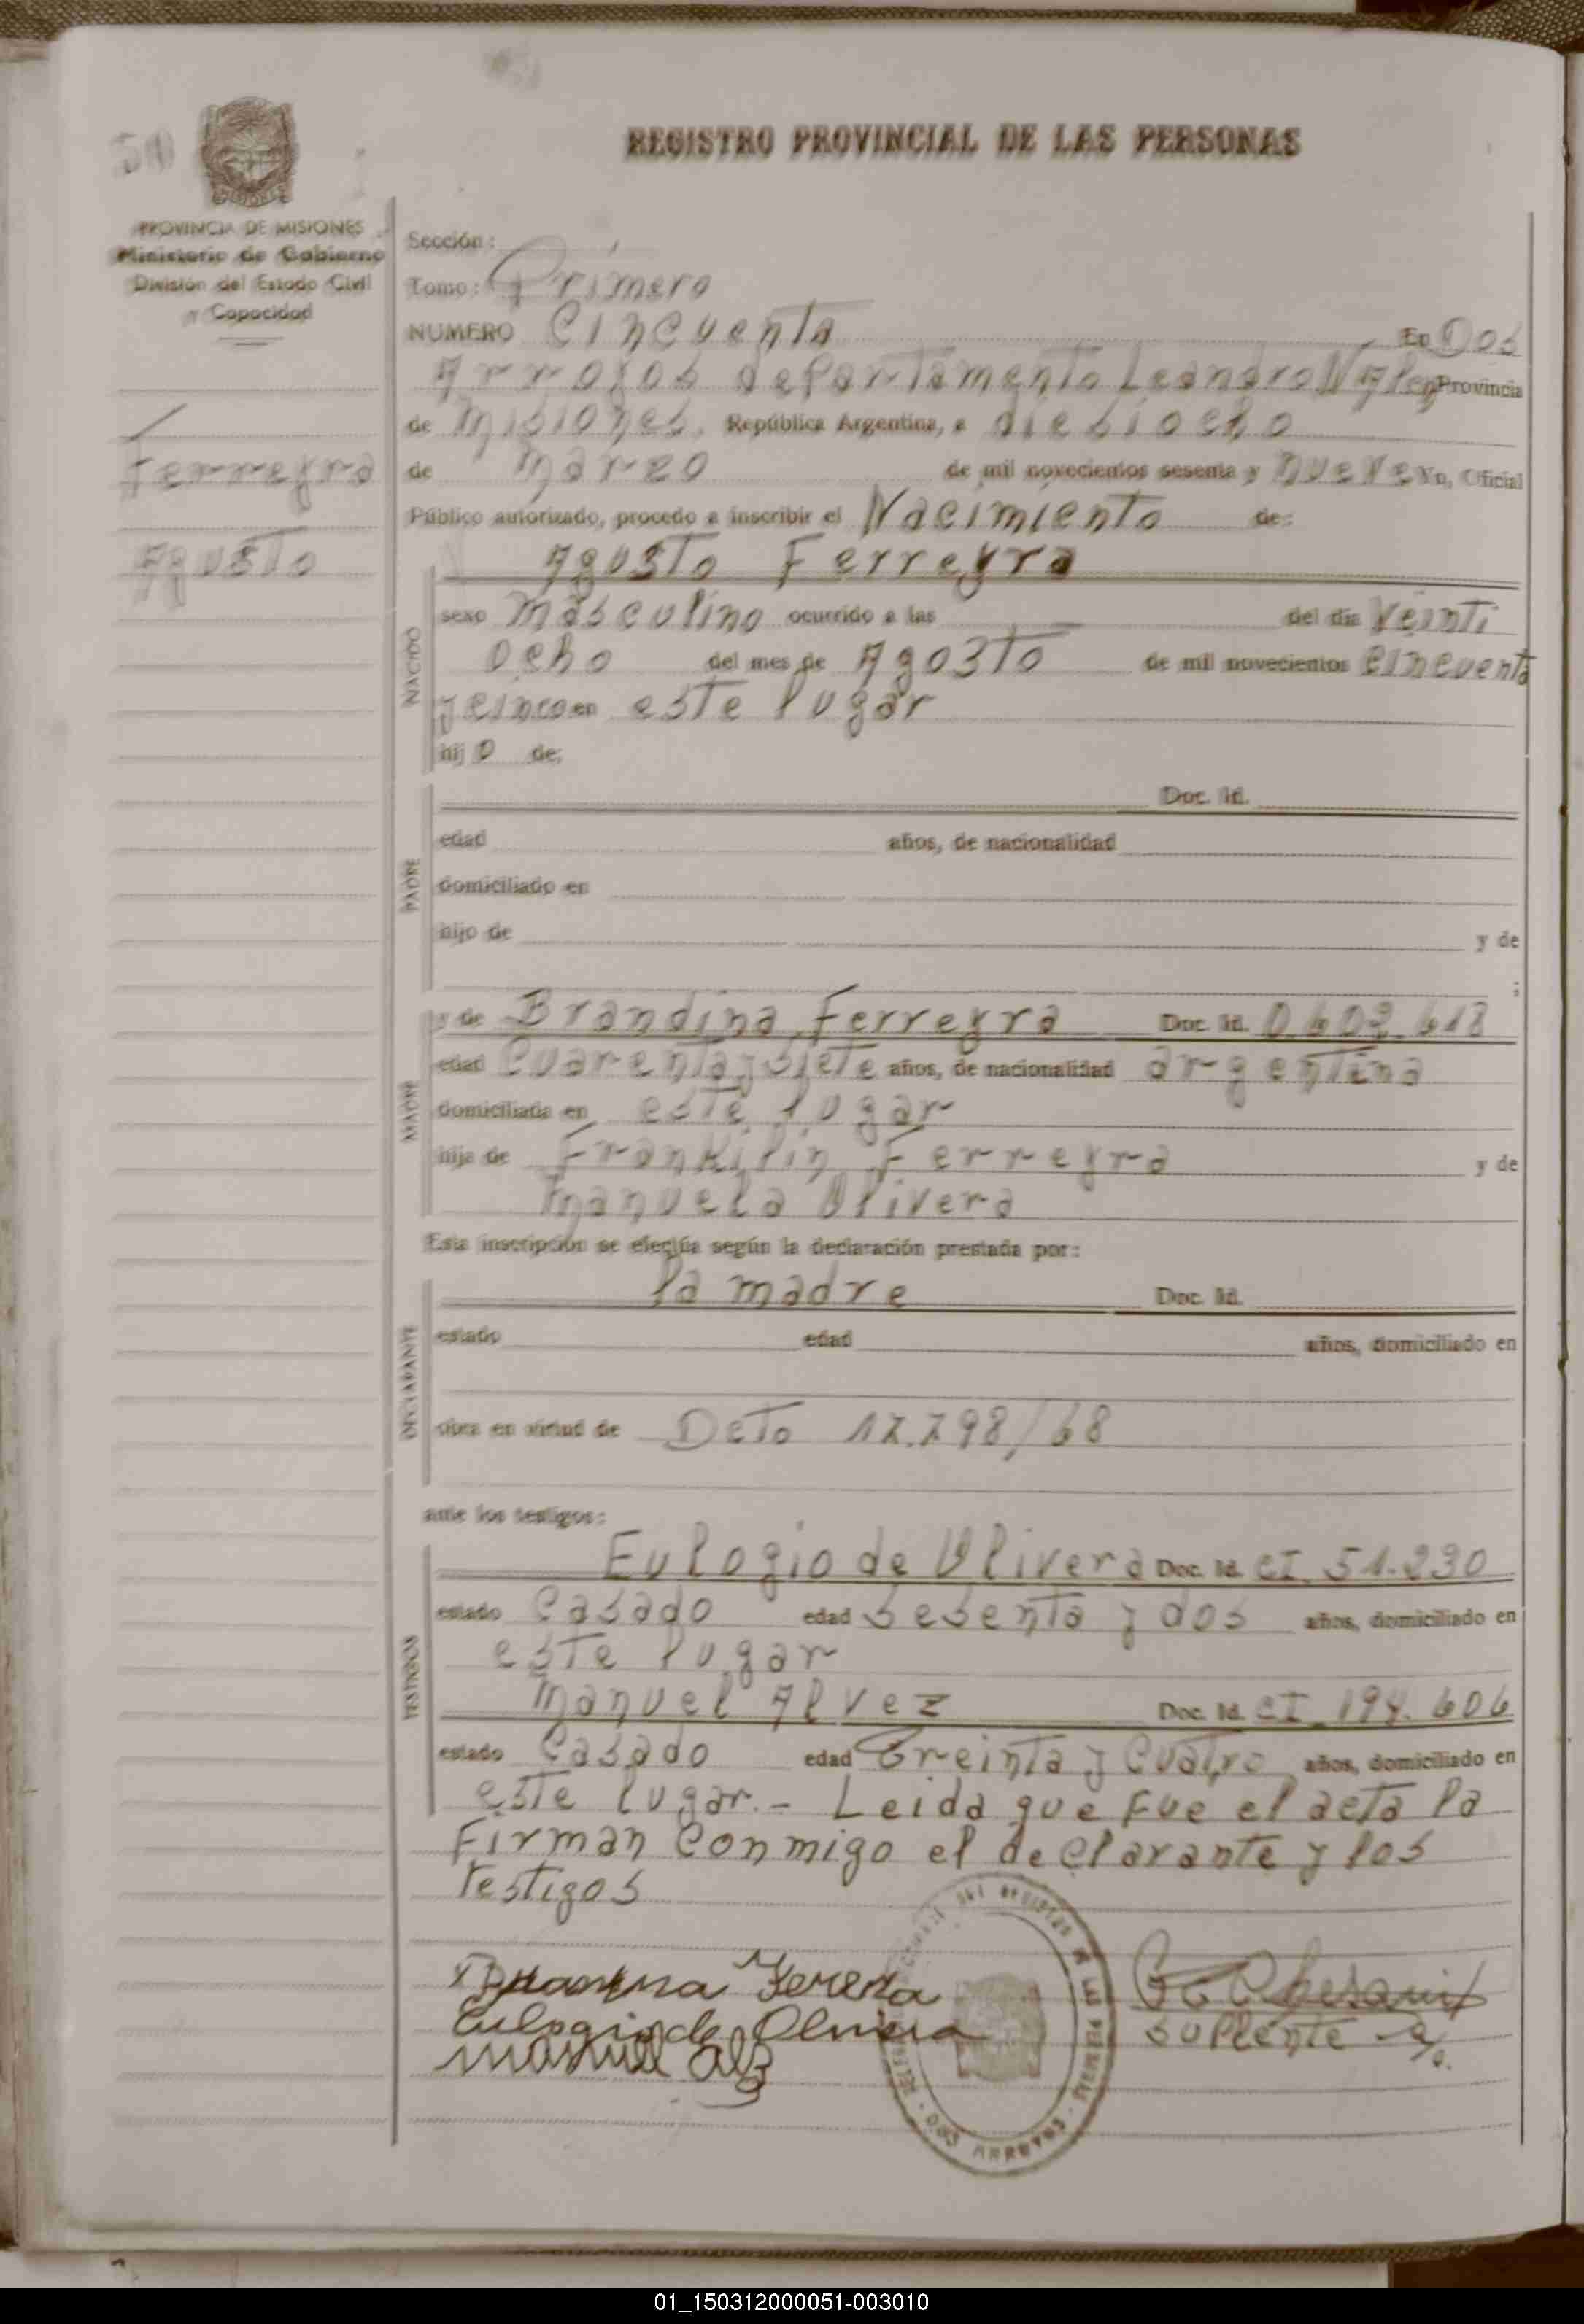 50
REGISTRO PROVINCIAL DE LAS PERSONAS
PROVINCIA DE MISIONES
Ministerio de Gobierno
División del Estado Civil
y Capacidad
Ferreyra
Agusto
Sección:
Tomo: Primero
NUMERO Cincuenta En Dos
Arroyos departamento Leandro N Alem Provincia
de Misiones, República Argentina, a diesiocho
de Marzo de mil novecientos sesenta y nueve Yo, Oficial
Público autorizado, procedo a inscribir el Nacimiento de:
Agusto Ferreyra
NACIDO
sexo Masculino ocurrido a las del día Veinti
ocho del mes de Agosto de mil novecientos cincuenta
y cinco en este lugar
hijo de:
PADRE
Doc. Id.
edad años, de nacionalidad
domiciliado en
hijo de y de
;
MADRE
y de Brandina Ferreyra Doc. Id.
edad Cuarenta y siete años, de nacionalidad argentina
domiciliada en este lugar
hija de Frankilin Ferreyra y de
Manuela Olivera
Esta inscripción se efectúa según la declaración prestada por:
DECLARANTE
la madre Doc. Id.
estado edad años, domiciliado en
obra en virtud de Deto 17.798/68
ante los testigos:
TESTIGOS
Eulogio de Olivera Doc. Id. CI 51.230
estado Casado edad Sesenta y dos años, domiciliado en
este lugar
Manuel Alvez Doc. Id. CI 194.606
estado Casado edad Treinta y Cuatro años, domiciliado en
este lugar.- Leida que fue el acta la
Firman Conmigo el declarante y los
testigos
Eulogio de Olivera
Manuel
suplente a/c.
DOS ARROYOS
01_150312000051-003010